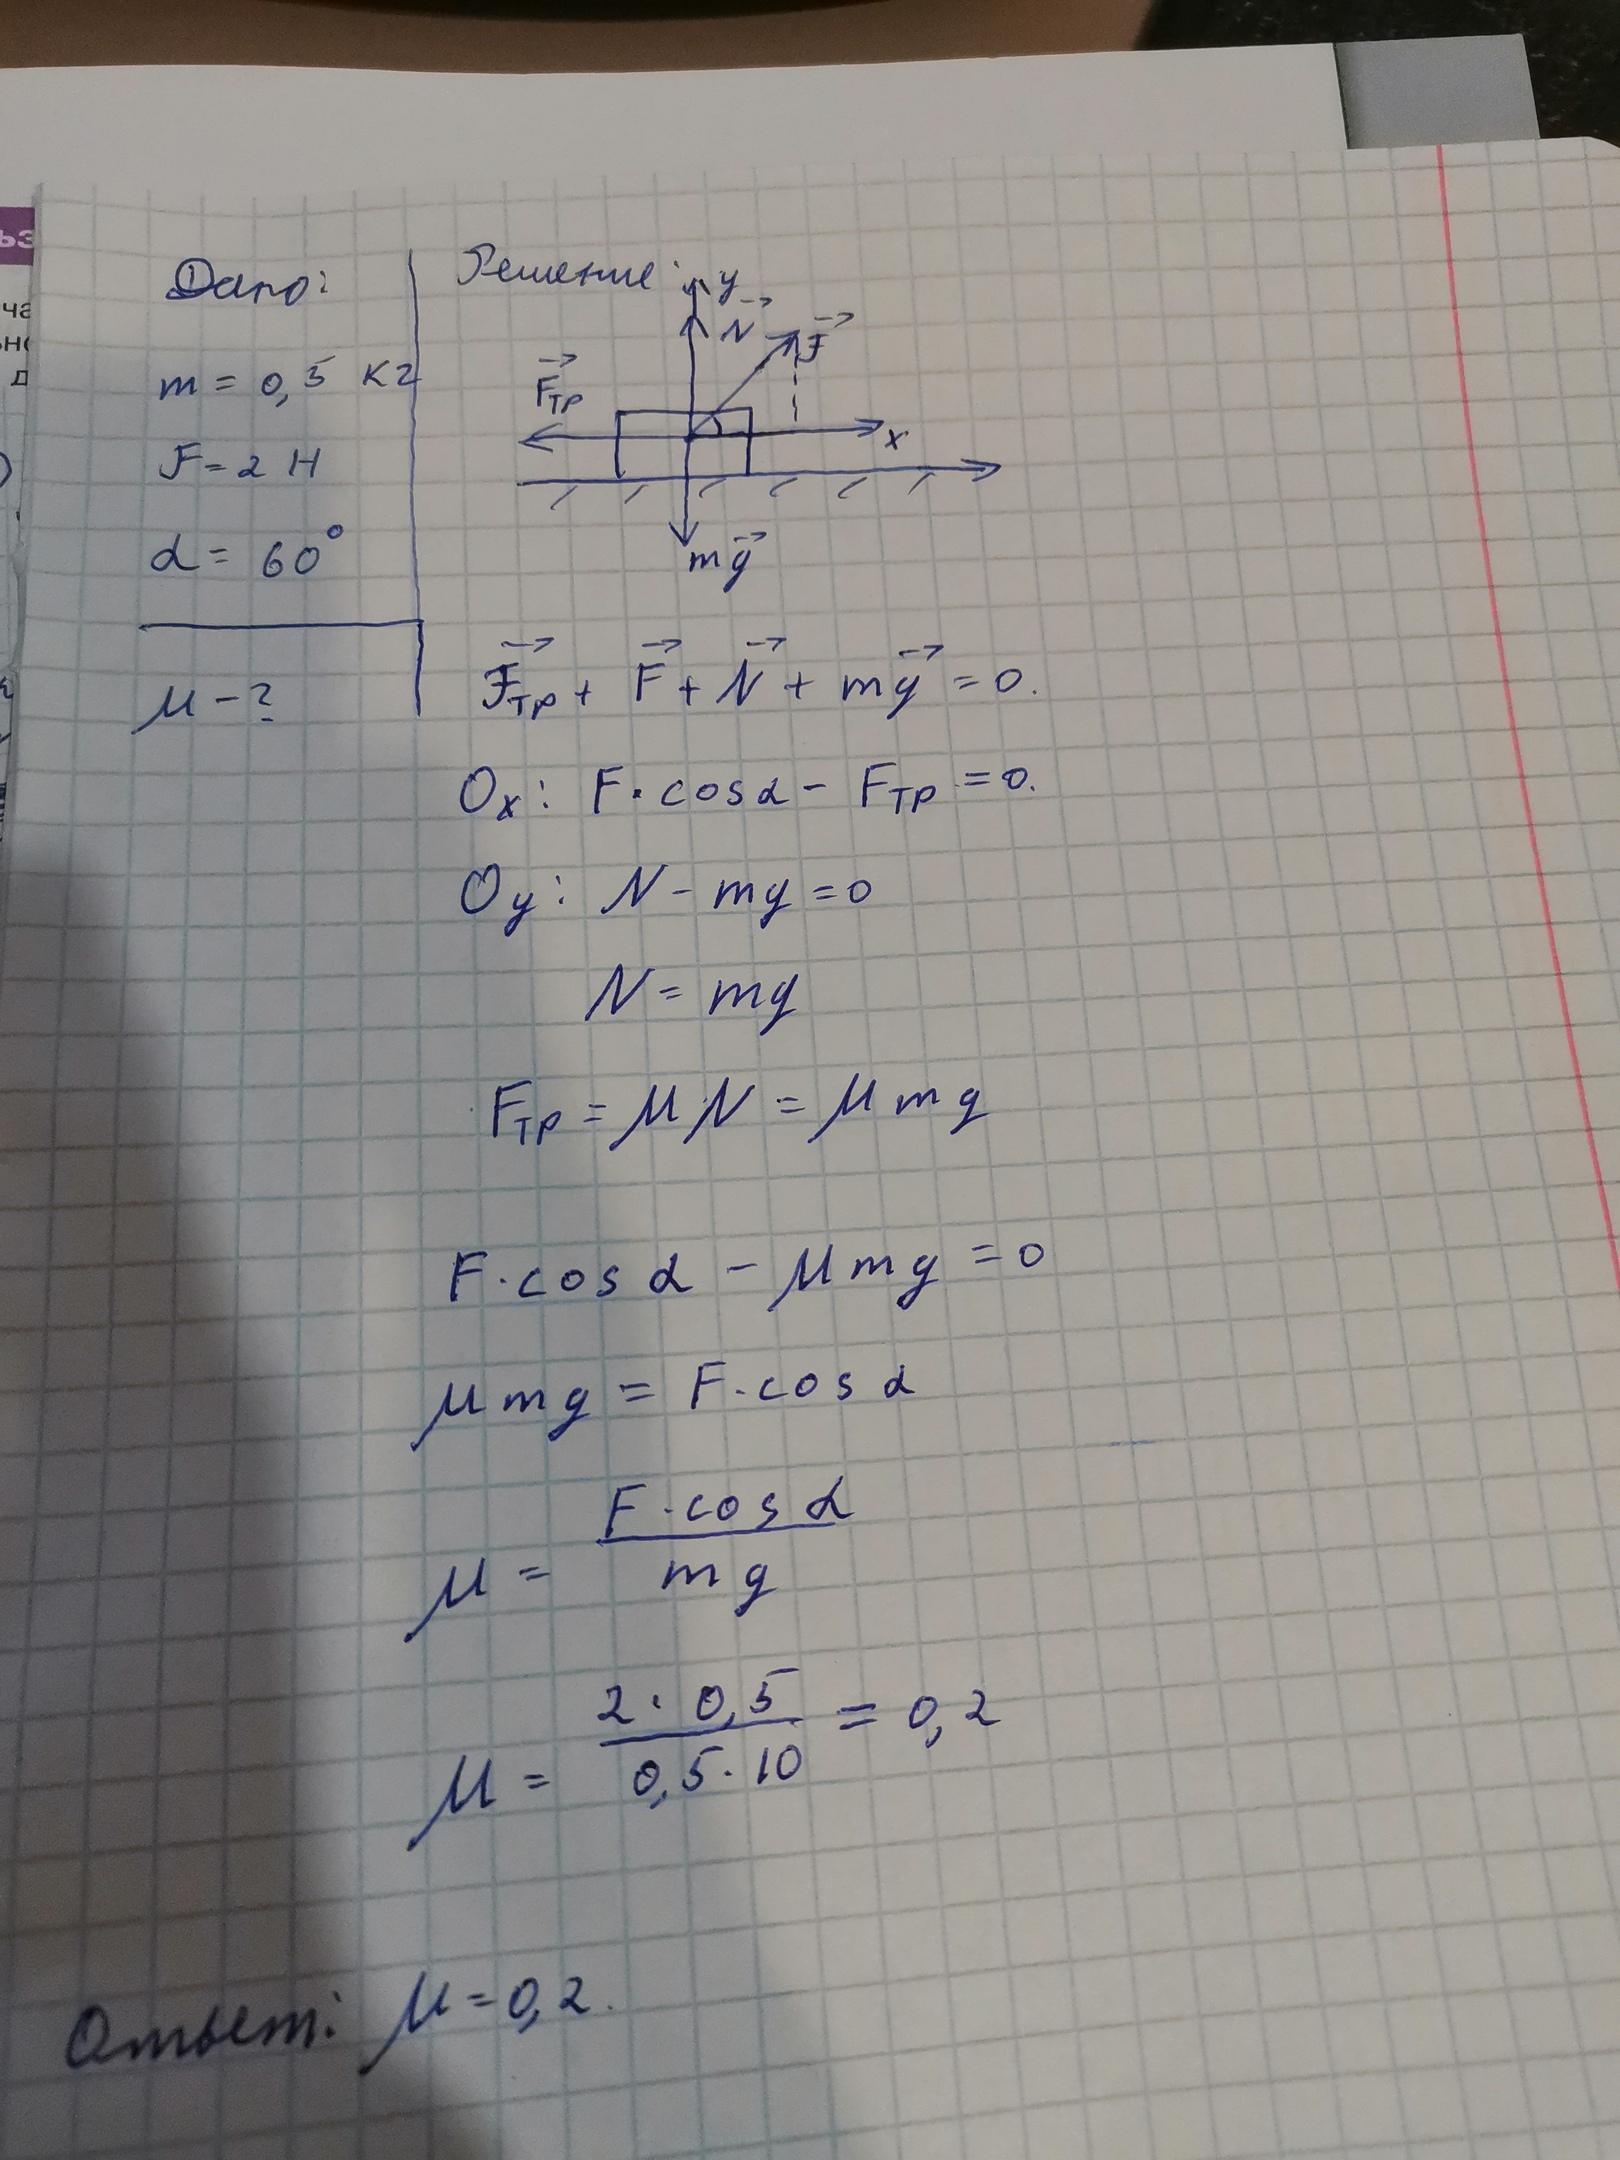 Дано:
m = 0,5 кг
F = 2 Н
α = 60°
μ - ?
Решение:
y
N
F
Fтр
x
mg
Fтр + F + N + mg = 0.
Ox: F·cosα - Fтр = 0.
Oy: N - mg = 0
N = mg
Fтр = μN = μmg
F·cos α - μmg = 0
μmg = F·cos α
μ = F·cos α / mg
μ = 2·0,5 / 0,5·10 = 0,2
Ответ: μ = 0,2.